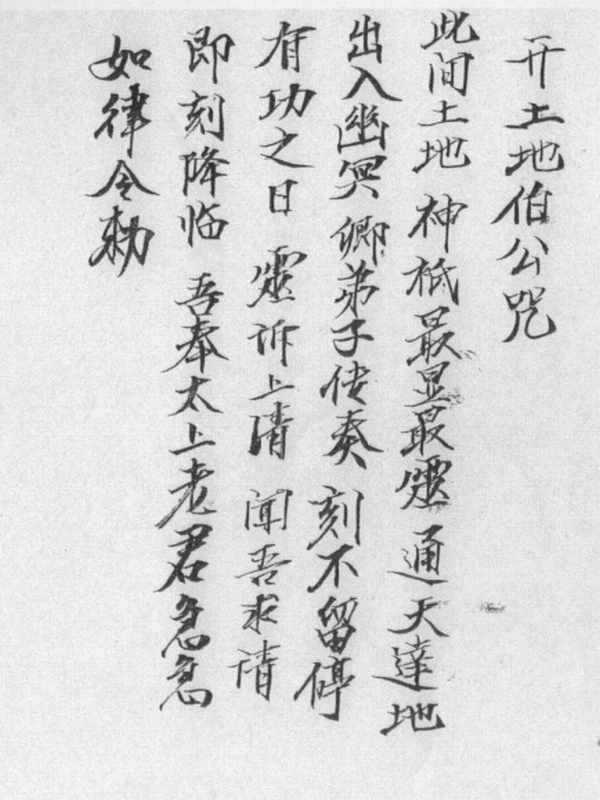 开土地伯公咒
此间土地 神祇最显最靈 通天達地
出入幽冥 卿弟子传奏 刻不留停
有功之日 靈诉上清 闻吾求请
即刻降临 吾奉太上老君急急
如律令勅